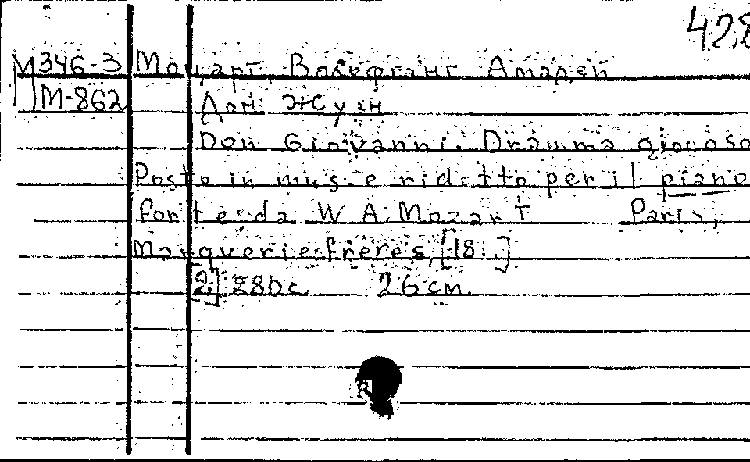 428
М346-3 Моцарт, Вольфганг Амадей
М-862 Дон Жуан
Don Giovanni. Dramma giocoso
Posto in mus. e ridotto per il piano
forte da W A Mozart Paris,
Marquerie frères, [18..]
[2] 280 с. 26 см.